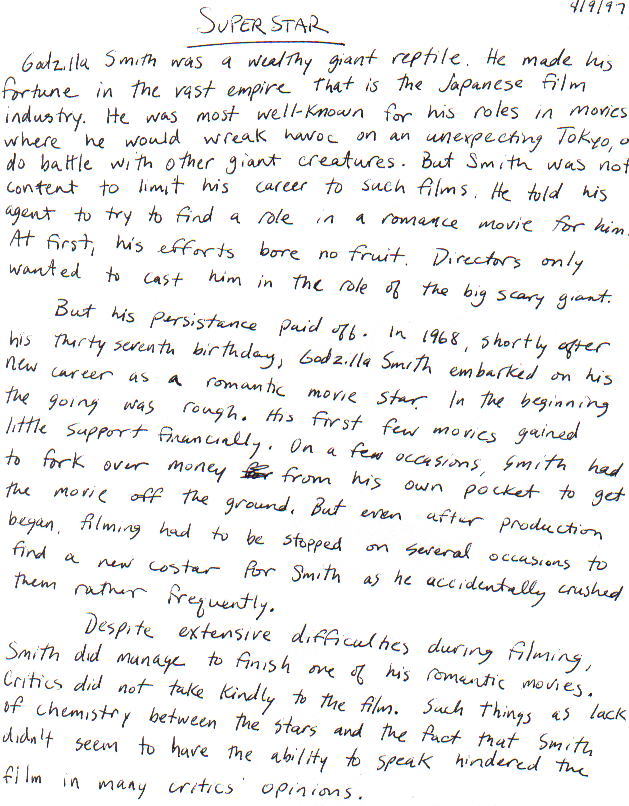 4/9/97
SUPERSTAR
Godzilla Smith was a wealthy giant reptile. He made his
fortune in the vast empire that is the Japanese film
industry. He was most well-known for his roles in movies
where he would wreak havoc on an unexpecting Tokyo, o
do battle with other giant creatures. But Smith was not
content to limit his career to such films. He told his
agent to try to find a role in a romance movie for him.
At first, his efforts bore no fruit. Directors only
wanted to cast him in the role of the big scary giant.
But his persistance paid off. In 1968, shortly after
his thirty seventh birthday, Godzilla Smith embarked on his
new career as a romantic movie star. In the beginning
the going was rough. His first few movies gained
little support financially. On a few occasions, Smith had
to fork over money from his own pocket to get
the movie off the ground. But even after production
began, filming had to be stopped on several occasions to
find a new costar for Smith as he accidentally crushed
them rather frequently.
Despite extensive difficulties during filming,
Smith did manage to finish one of his romantic movies.
Critics did not take kindly to the film. Such things as lack
of chemistry between the stars and the fact that Smith
didn't seem to have the ability to speak hindered the
film in many critics' opinions.